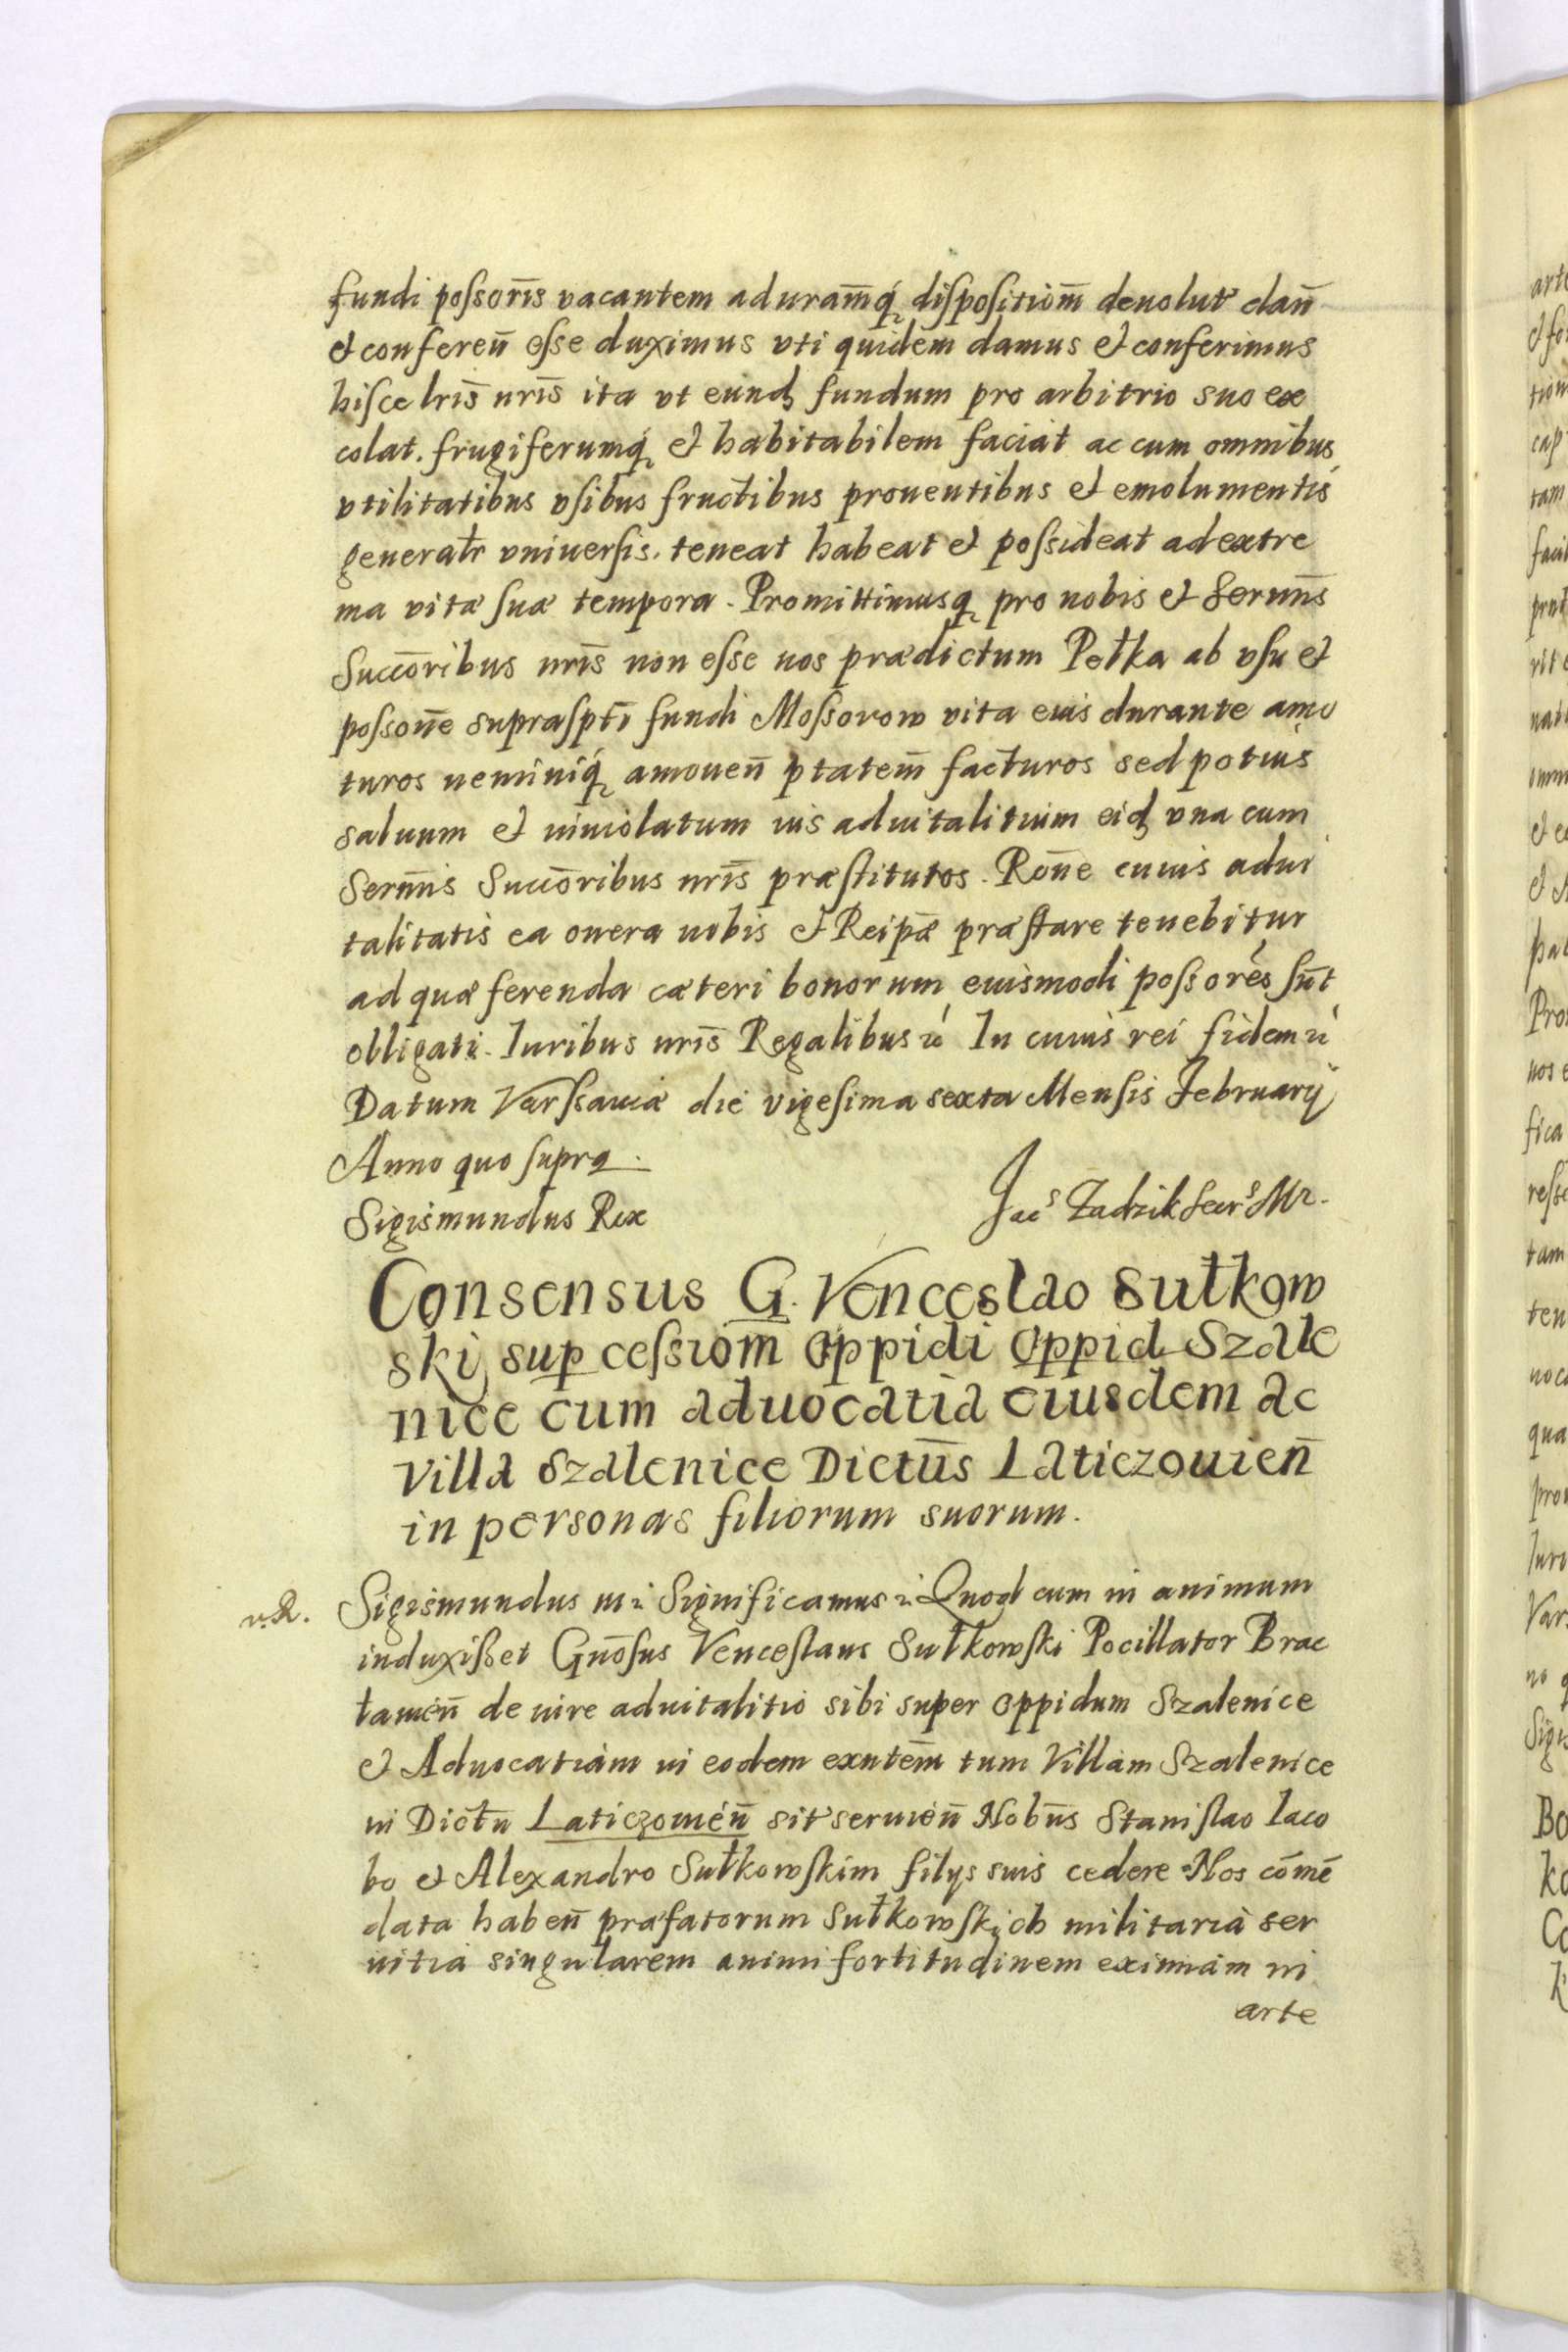 fundi poſsorīs vacantem aduram̄q́ diſpoſitiom̄ deuolut dan̄
et conferen̄ eſse duximus vti quidem damus et conferimus
hiſce lrīs nrīs ita vt eund fundum pro arbitrio suo ex
colat. frugiferumq́ et habitabilem faciat ac cum omnibus
vtilitatibus vſibus fructibus prouentibus et emolumentis
generatr vniuerſis. teneat habeat et poſsideat ad extre
ma vitæ ſuæ tempora. Promittimusq pro nobis et Serum̄s
Succōribus nrīs non eſse nos prædictum Pełka ab vſu et
poſson̄e supraſptī fundi Moſsorow vita eius durante amo
turos neminiq́ amouen̄ ptatem̄ facturos sed potius
saluum et inuiolatum ius aduitalitium eid vna cum
Serm̄is Succōribus nrīs præſtituros. Ron̄e cuius adui
talitatis ea onera nobis et Reipǣ præſtare tenebitur
ad quæ ferenda cæteri bonorum eiusmodi poſsorēs ſūt
obligati. Iuribus nrīs Regalibus ꝛc In cuius rei fidem ꝛc
Datum Varſsauiæ die vigeſima sexta Menſis February
Anno quo ſupra.
Sigismundus Rex
Jac⁸ Zadzik Secr⁸ Mr.
Consensus G. Venceslao Sułkow
ski sup ceſsiom̄ oppidi oppid Szale
nice cum aduocatia eiusdem ac
villa Szalenice Dictūs Laticzouien̄
in personas filiorum suorum.
Sigismundus III ꝛc Significamus ꝛc Quod cum in animum
induxiſset Gnōſus Venceſlaus Sułkowſki Pocillator Brac
lauien̄ de iure aduitalitio sibi super oppidum Szalenice
et Aduocatiam in eodem exntem̄ tum Villam Szalenice
in Dictu Laticzouien̄ sit seruien̄ Nobn̄s Staniſlao Iaco
bo et Alexandro Sułkowſkim filys suis cedere Nos cōmē
data haben̄ præfatorum Sułkowſkich militaria ser
uitia singularem animi fortitudinem eximiam in
arte